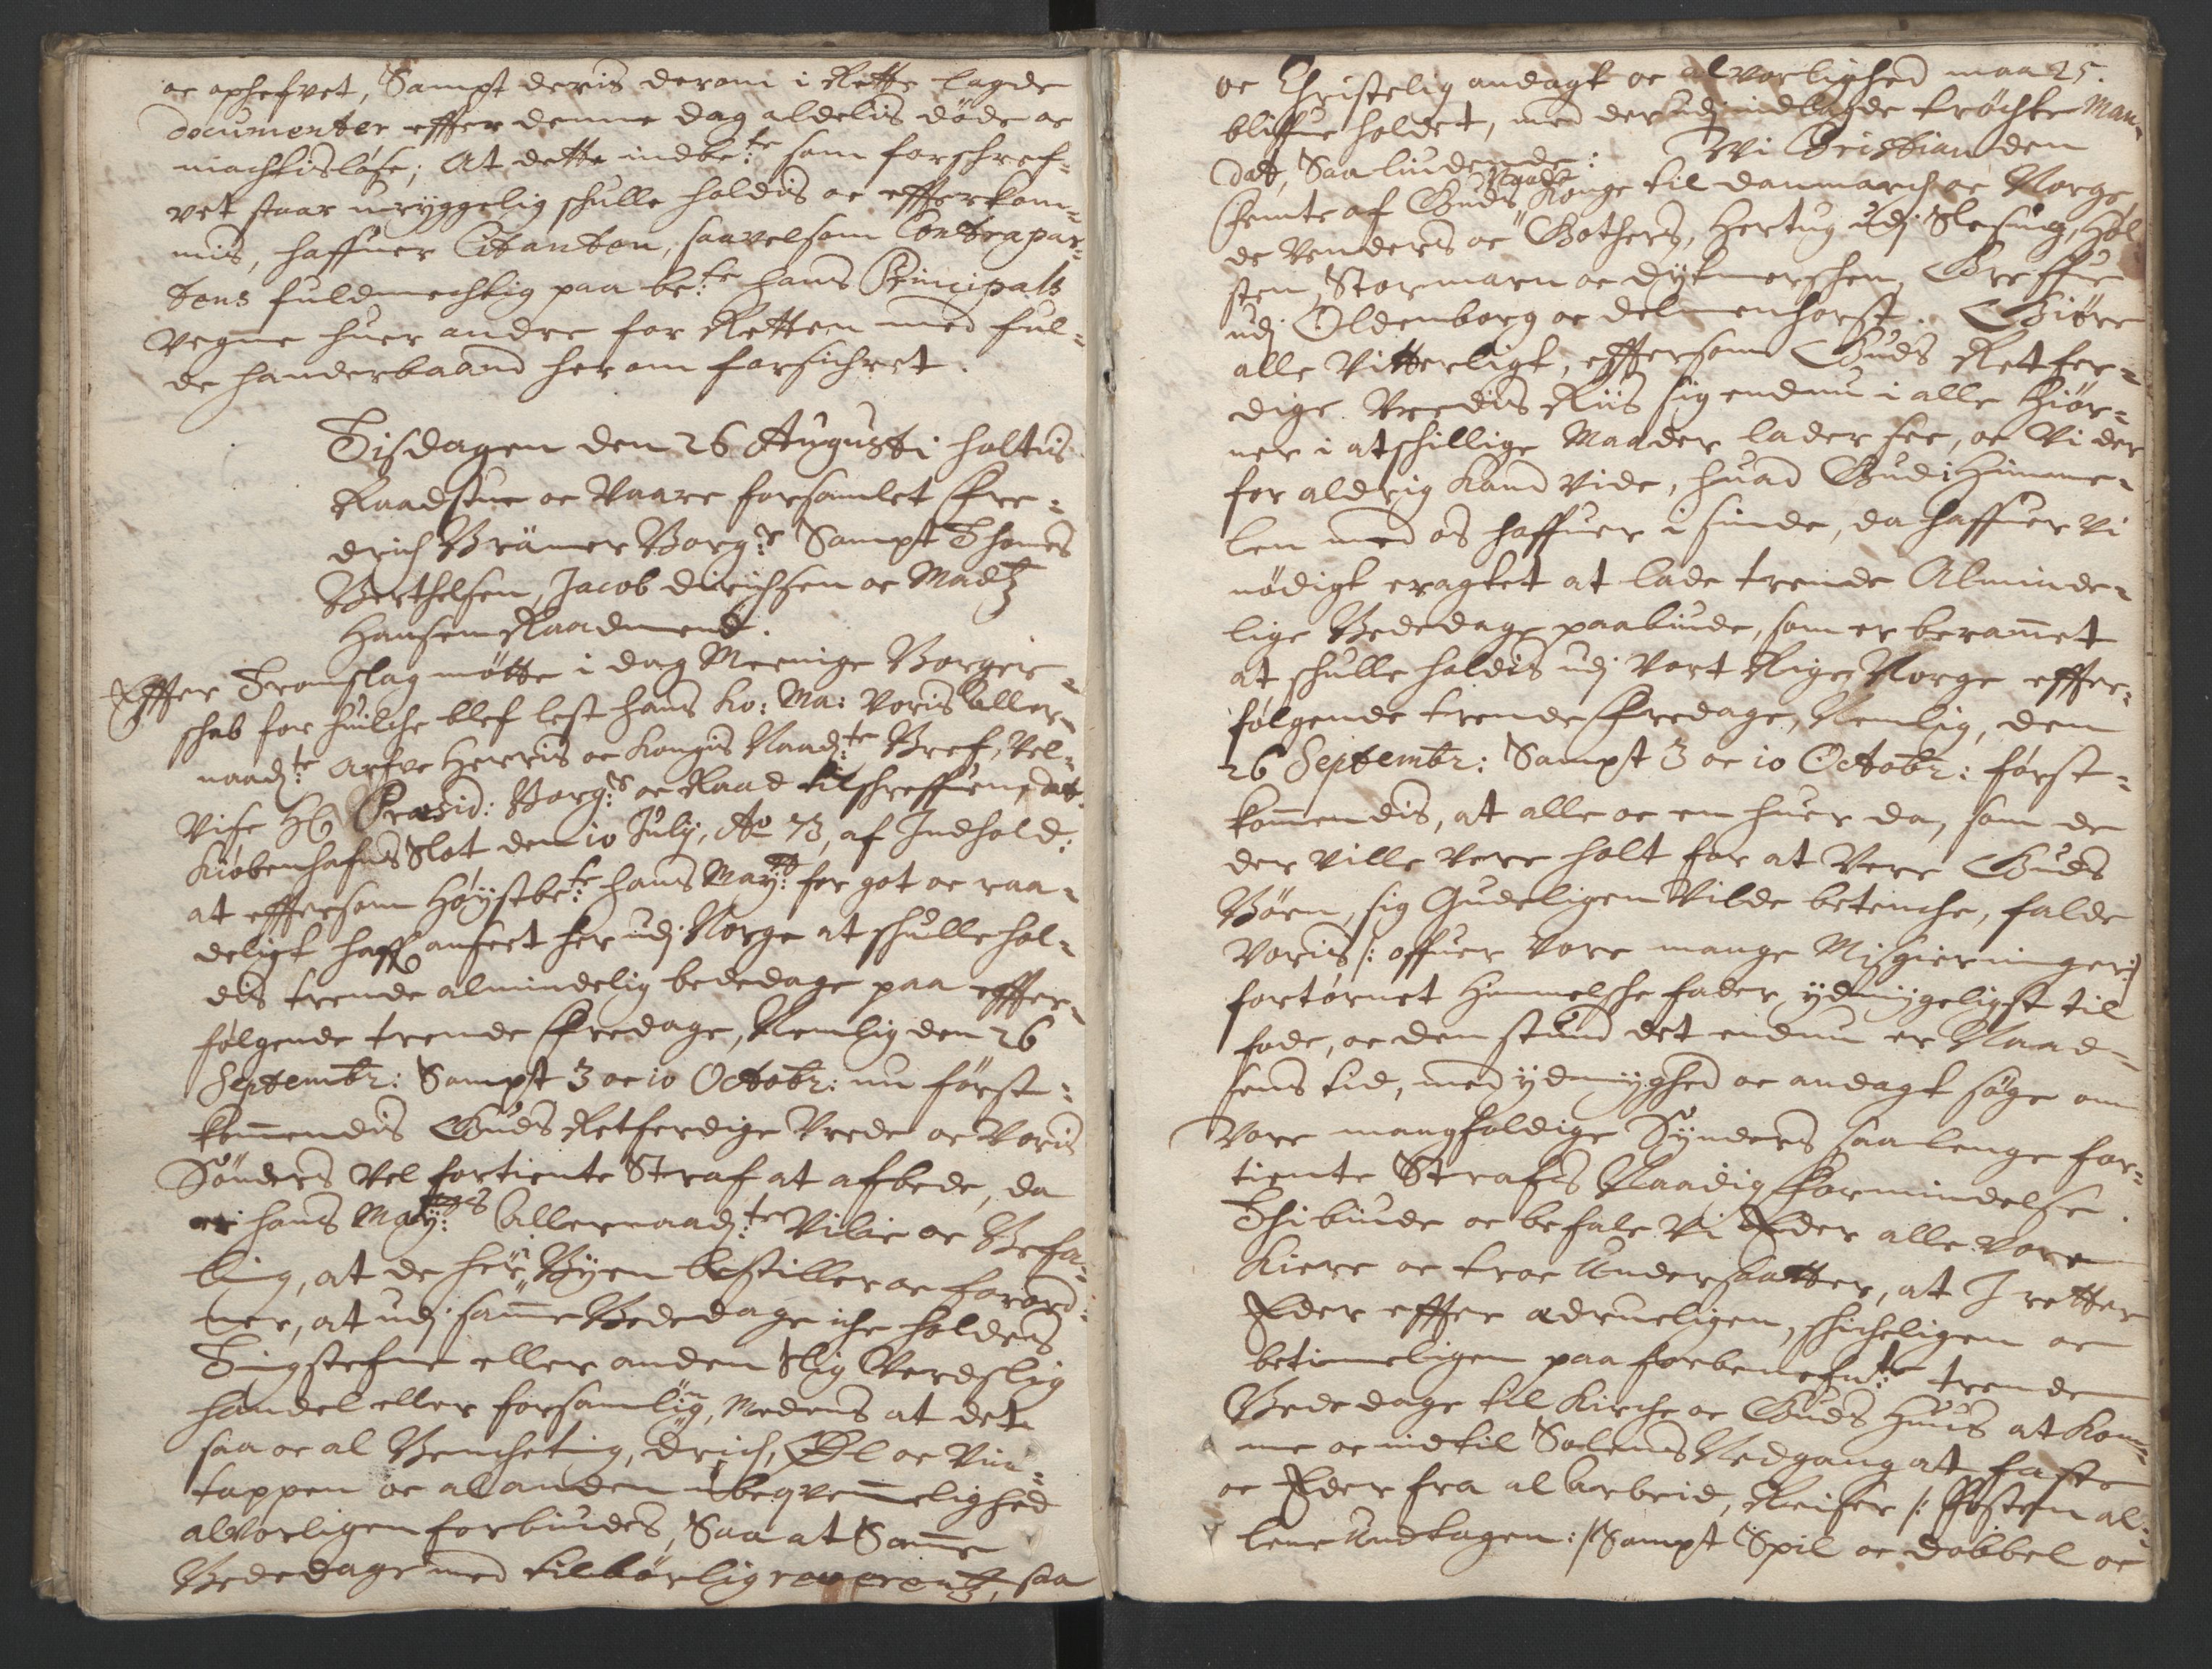 oc ophefvet, Sampt deris derom i Rette lagde
documenter effter denne dag aldelis døde oc
machtisløse; At dette indbe:te som forschref-
vet staar uryggelig schulle holdis oc effterkom-
mis, haffuer Citanten, saavelsom Contrapar-
tens fuldmechtig paa be:te hans Principals
Vegne huer andre for Retten med ful-
de handerbaand herom forsichret.
Tisdagen den 26 Augusti holtis
Raadstue oc Vaare forsamlet Fre-
drich Brämer Borg:r Sampt Thomes
Berthelsen, Jacob Dirichsen oc Madtz
Hansen Raadmend.
Effter Tromslag møtte i dag Meenige Borger-
schab for huilche blef lest hans Ko: Ma: Voris Aller-
naad:te Arfve Herris oc Kongis Naad:te Bref, Vel-
vise H: Præsid: Borg:r oc Raad tilschreffuen, dat:
Kiøbenhafns Slot den 10 July, Ao 73, af Indhold:
at effersom Høystbe:te hans May:tt for got oc raa-
deligt haffr anseet her udj Norge at schulle hol-
dis trende almindelig bededage paa effter-
følgende trende Fredage, Nemlig den 26
Septembr: Sampt 3 oc 10 Octobr: nu først-
kommendis Guds Retferdige Vrede oc Voris
Sønders Vel fortiente Straf at afbede, da
er hans May:tts Allernaad:te Vilie oc Befa-
ling, at de her i Byen bestiller oc forord-
ner, at udj samme Bededage iche holdes
Tingstefne eller anden Slig Verdslig
handel eller forsamling, Medens at det
saa oc al Bencheting, Drich, Øl oc Vin-
tappen oc al anden ubeqvemmelighed
alvorligen forbiudes, Saa at Samme
Bededage med tilbørlig reverentz, saa
oc Christelig andagt oc alvorlighed maa 25.
bliffue holdet, med der udj indlagde trøchte Man-
dat, Saa liudende: Vi Christian den
Femte af Guds Naade Konge til Danmarch oc Norge
de Venders oc Gothers, Hertug udj Slesuig, Hol-
sten, Stormarn oc Dytmerschen, Greffue
udj Oldenborg oc Delmenhorst. Giøre
alle Vitterligt, effersom Guds Retfer-
dige Vredis Riis sig endnu i alle Hiør-
ner i atschillige Maader lader see, oc Vi der
for aldrig kand vide, huad Gud i Himme-
len med os haffuer i sinde, da haffuer Vi
nødigt eragtet at lade trende Alminde-
lige Bededage paabiude, som er beramet
at schulle holdis udj Vort Rige Norge effter-
følgende trende Fredage, Nemlig, den
26 Septembr: Sampt 3 oc 10 Octobr: først-
kommendis, at alle oc en huer da, som de
der ville vere holt for at Vere Guds
Børn, sig Gudeligen Vilde betenche, falde
Voris /: offuer Vore mange Misgierninger :/
fortørnet Himmelsche fader ydmygeligst til
fode, oc den stund det endnu er Naad-
sens tid, med ydmyghed oc andagt søge om
Vore mangfoldige Synders saa lenge for-
tiente Strafis Naadig Formindelse.
Thi biude oc befale Vi Eder alle Vore
Kiere oc troe Undersaatter, at I retter
Eder effter ædrueligen, schicheligen oc
betimeligen paa forbenefn:te trende
Bededage til Kirche oc Guds Huus at kom-
me oc indtil Solens Nedgang at faste
oc Eder fra al Arbeid, Reiser /: Posten al-
lene Undtagen :/ Sampt Spil oc dobbel oc